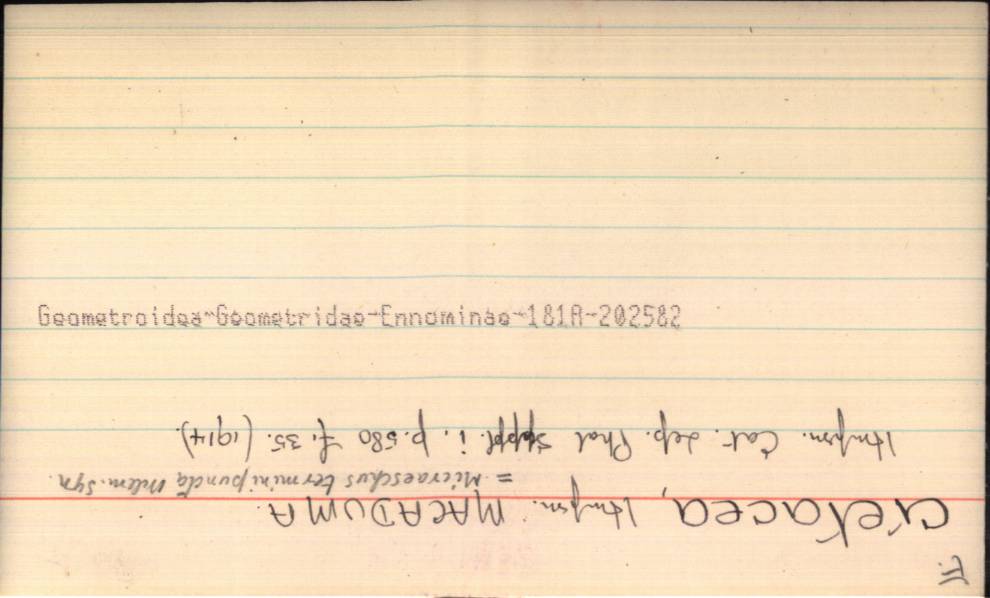 F.
cretacea, Hmpsn. MACADUMA.
= Micraeschus terminipuncta Wlem. Syn.
Hmpsn. Cat. Lep. Phal. Suppl. i. p. 580 f. 35. (1914).
Geometroidea-Geometridae-Ennominae-181A-202582